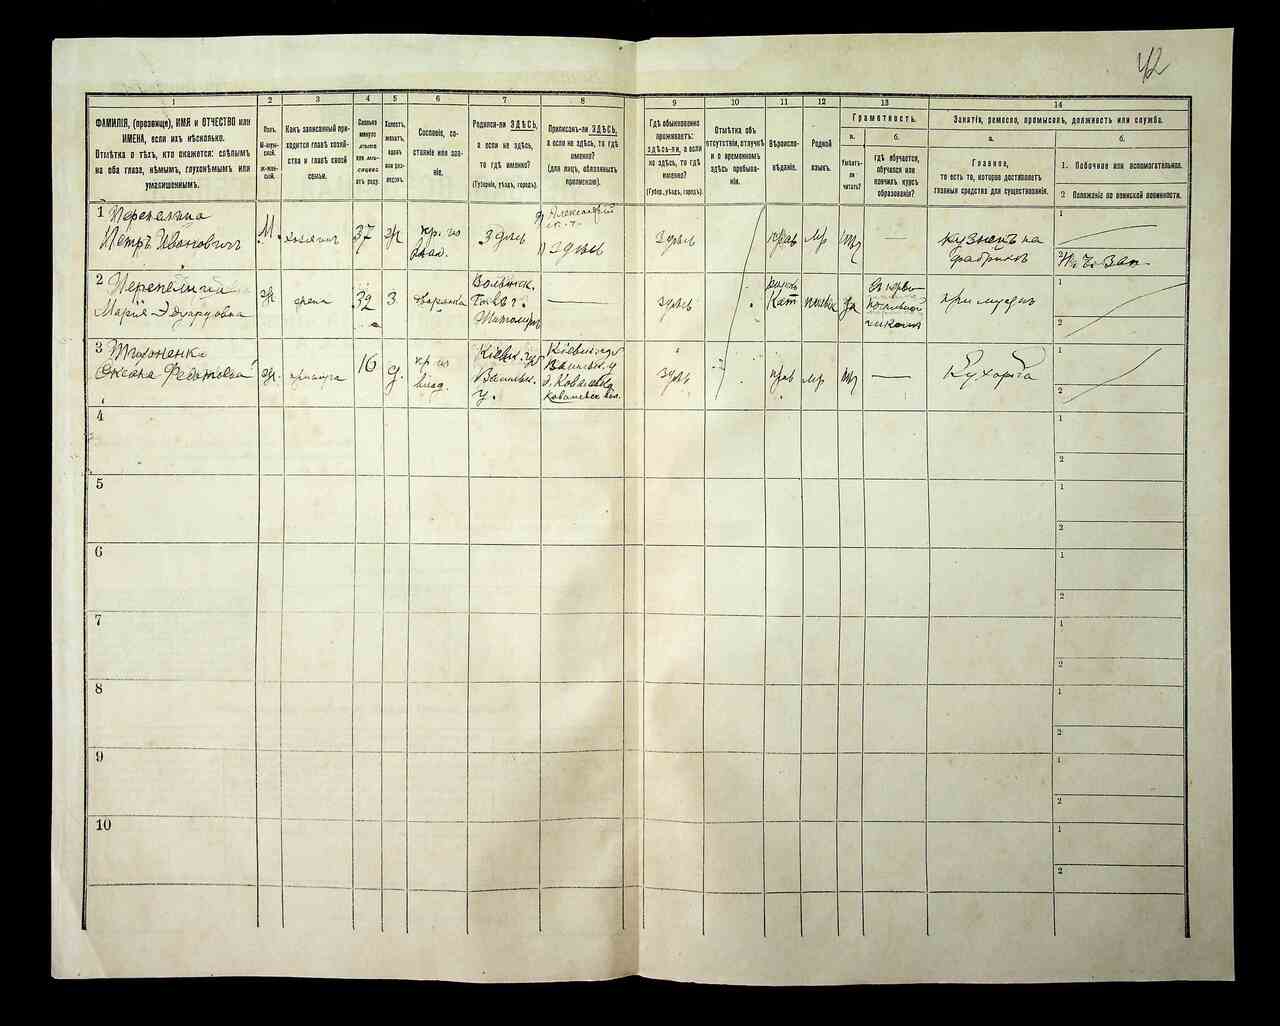 42
1
2
3
4
5
6
7
8
9
10
11
12
13
14
ФАМИЛІЯ, (прозвище), ИМЯ и ОТЧЕСТВО или
ИМЕНА, если ихъ нѣсколько.
Отмѣтка о тѣхъ, кто окажется: слѣпымъ
на оба глаза, нѣмымъ, глухонѣмымъ или
умалишеннымъ.
Полъ.
М-мужской.
Ж-женскій.
Какъ записанный приходится главѣ хозяйства и главѣ своей
семьи.
Сколько
минуло
лѣтъ
или мѣсяцевъ
отъ роду.
Холостъ,
женатъ,
вдовъ
или разведенъ.
Сословіе, состояніе или званіе.
Родился-ли ЗДѢСЬ,
а если не здѣсь,
то гдѣ именно?
(Губернія, уѣздъ, городъ).
Приписанъ-ли ЗДѢСЬ,
а если не здѣсь, то гдѣ
именно?
(для лицъ, обязанныхъ
припискою).
Гдѣ обыкновенно
проживаетъ:
здѣсь-ли, а если
не здѣсь, то гдѣ
именно?
(Губер., уѣздъ, городъ).
Отмѣтка объ
отсутствіи, отлучкѣ
и о временномъ
здѣсь пребываніи.
Вѣроисповѣданіе.
Родной
языкъ.
Грамотность.
а.
Умѣетъ-
ли
читать?
б.
гдѣ обучается,
обучался или
кончилъ курсъ
образованія?
Занятія, ремесло, промыселъ, должность или служба.
а.
Главное,
то есть то, которое доставляетъ
главныя средства для существованія.
б.
1. Побочное или вспомогательное.
2 Положеніе по воинской повинности.
1
Петръ Ивановичъ
М.
хозяинъ
37
ж
кр. из
Здѣсь
Здѣсь
здѣсь
прав
мр
—
кузнецъ на
фабрикѣ
1
2
2
Марія Эдуардовна
ж
жена
32
з
дворянка
Волынск.
Житомиръ
—
здѣсь
Кат
да
при мужѣ
1
2
3
Тихоненко
ж
16
д.
кр из
Кіевск. гу
Васильк.
у.
Кіевск. гу
Васильк. у
д. Ковалевка
Ковалевск вол.
здѣсь
прав
мр
—
Кухарка
1
2
4
1
2
5
1
2
6
1
2
7
1
2
8
1
2
9
1
2
10
1
2